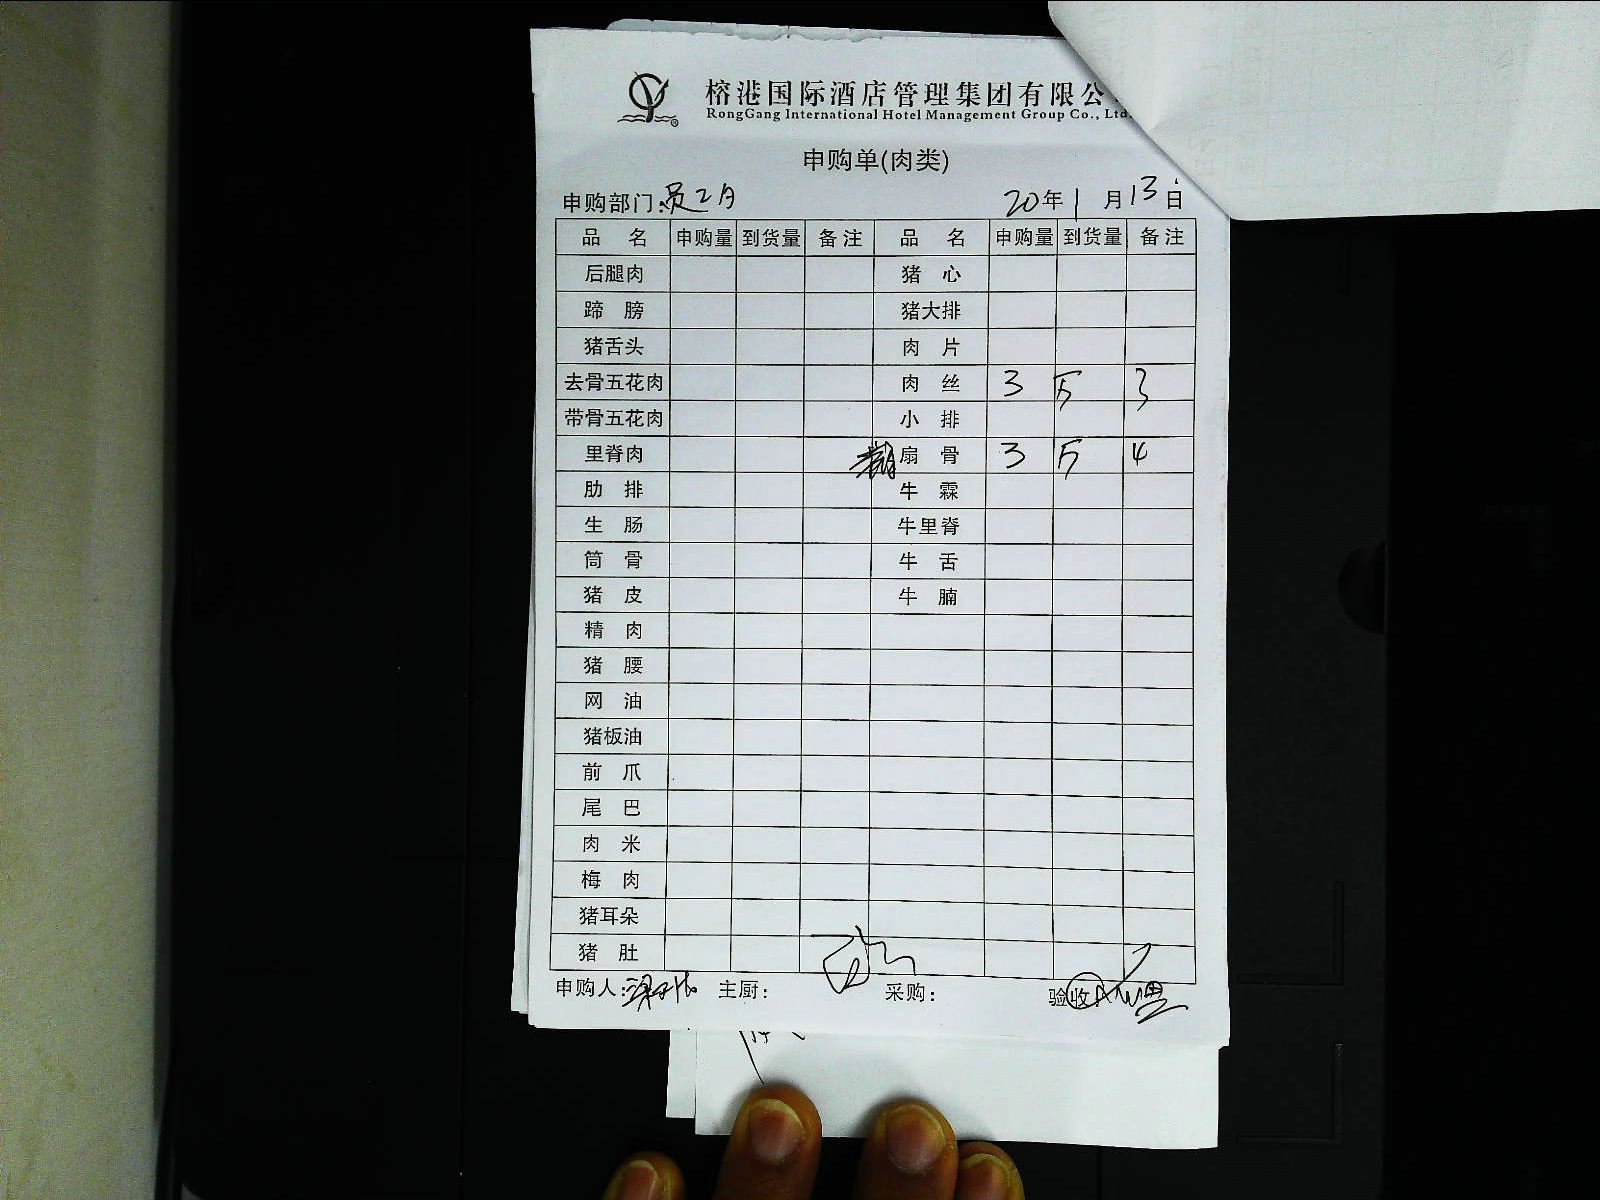 榕港国际酒店管理集团有限公
RongGang International Hotel Management Group Co., Ltd.
申购单(肉类)
申购部门: 员工 20年1月13日
品 名 申购量 到货量 备注 品 名 申购量 到货量 备注
后腿肉 猪 心
蹄 膀 猪大排
猪舌头 肉 片
去骨五花肉 肉 丝 3 斤 3
带骨五花肉 小 排
里脊肉 扇 骨 3 斤 4
肋 排 牛 霖
生 肠 牛里脊
筒 骨 牛 舌
猪 皮 牛 腩
精 肉
猪 腰
网 油
猪板油
前 爪
尾 巴
肉 米
梅 肉
猪耳朵
猪 肚
申购人: 主厨: 采购: 验收